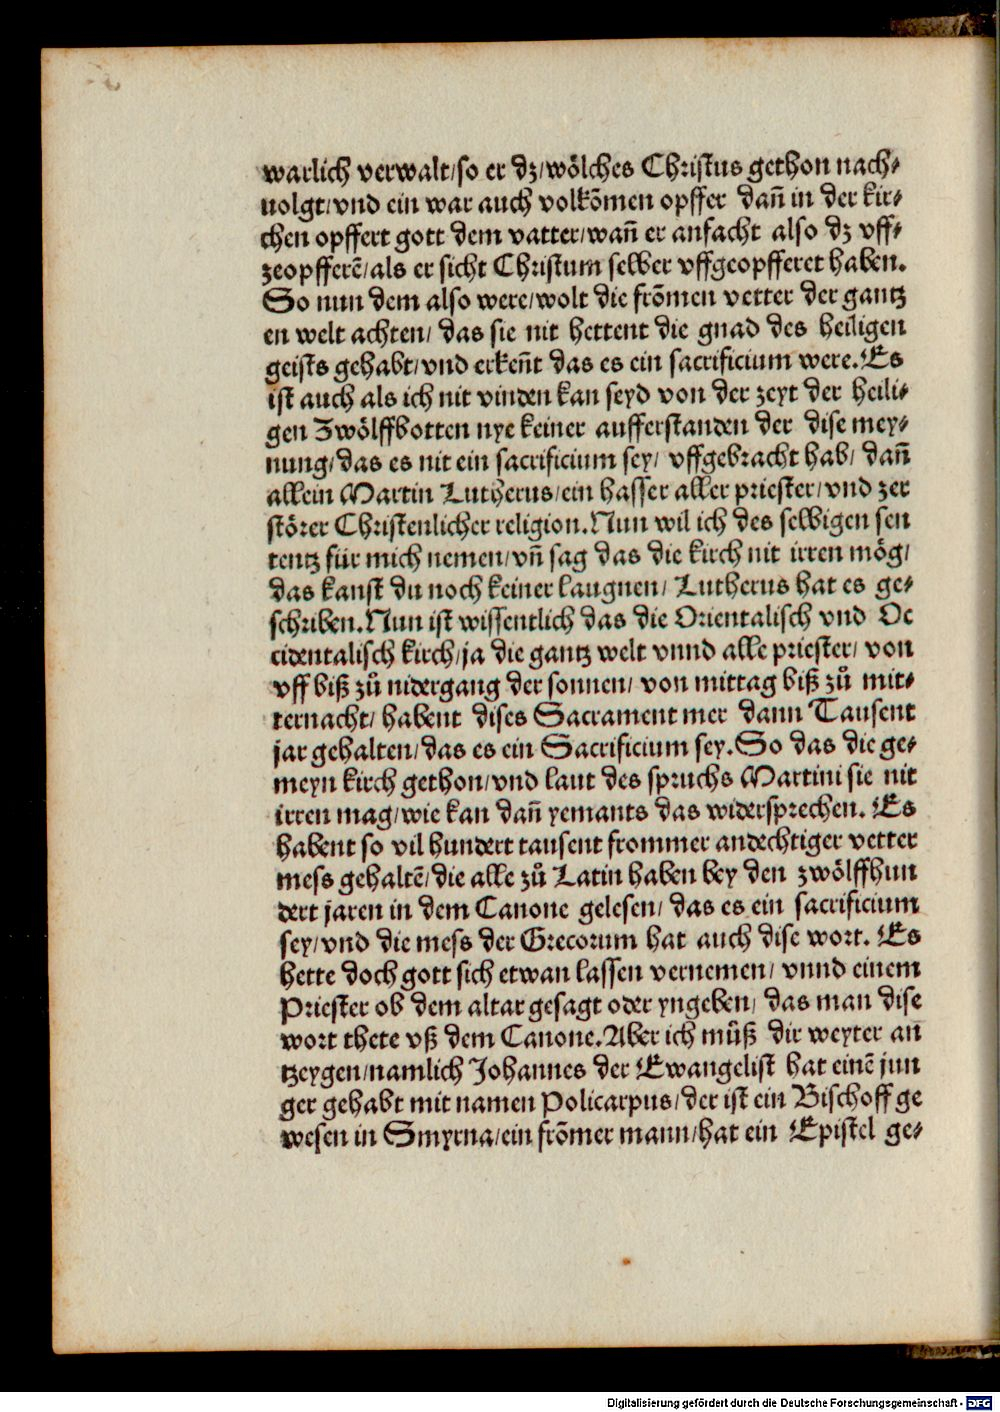 warlich verwalt/so er dz/wölches Christus gethon nach⸗
uolgt/vnd ein war auch volkōmen opffer dañ in der kir⸗
chen opffert gott dem vatter/wañ er anfacht also dz vff⸗
zeopfferē/als er sicht Christum selber vffgeopfferet haben.
So nun dem also were/wolt die frōmen vetter der gantz
en welt achten/ das sie nit hettent die gnad des heiligen
geists gehabt/vnd erkeñt das es ein sacrificium were. Es
ist auch als ich nit vinden kan seyd von der zeyt der heili⸗
gen Zwölffbotten nye keiner aufferstanden der dise mey⸗
nung/das es nit ein sacrificium sey/ vffgebracht hab/ dañ
allein Martin Lutherus/ein hasser aller priester/vnd zer
störer Christenlicher religion. Nun wil ich des selbigen sen
tentz für mich nemen/vñ sag das die kirch nit irren mög/
das kanst du noch keiner laugnen/ Lutherus hat es ge⸗
schriben. Nun ist wissentlich das die Orientalisch vnd Oc
cidentalisch kirch/ja die gantz welt vnnd alle priester/ von
vff biß zů nidergang der sonnen/ von mittag biß zů mit⸗
ternacht/ habent dises Sacrament mer dann Tausent
jar gehalten/das es ein Sacrificium sey. So das die ge⸗
meyn kirch gethon/vnd laut des spruchs Martini sie nit
irren mag/wie kan dañ yemants das widersprechen. Es
habent so vil hundert tausent frommer andechtiger vetter
mess gehaltē/die alle zů Latin haben bey den zwölffhun
dert jaren in dem Canone gelesen/ das es ein sacrificium
sey/vnd die mess der Grecorum hat auch dise wort. Es
hette doch gott sich etwan lassen vernemen/ vnnd einem
Priester ob dem altar gesagt oder yngeben/ das man dise
wort thete vß dem Canone. Aber ich můß dir weyter an
tzeygen/namlich Johannes der Ewangelist hat einē jun
ger gehabt mit namen Policarpus/der ist ein Bischoff ge
wesen in Smyrna/ein frōmer mann/hat ein Epistel ge⸗
Digitalisierung gefördert durch die Deutsche Forschungsgemeinschaft - DFG